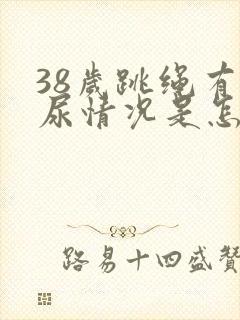 38岁跳绳有
尿情况是怎
路易十四盛赞